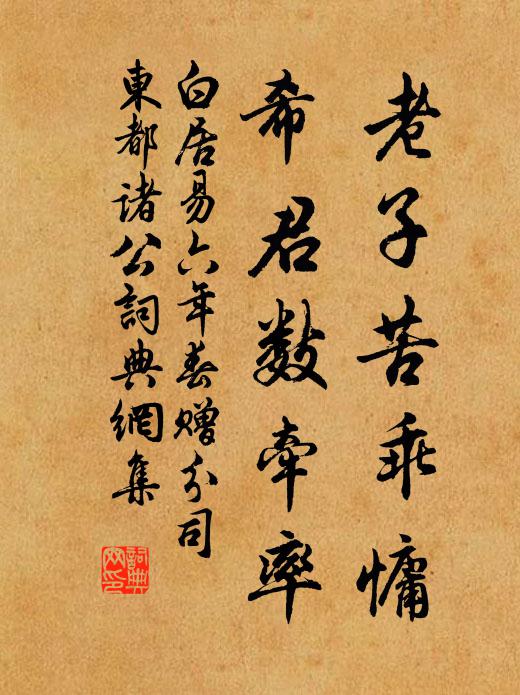 老子苦乖慵
希君数牵率
白居易六年春赠分司
東都诸公詞典網集
詞典网印